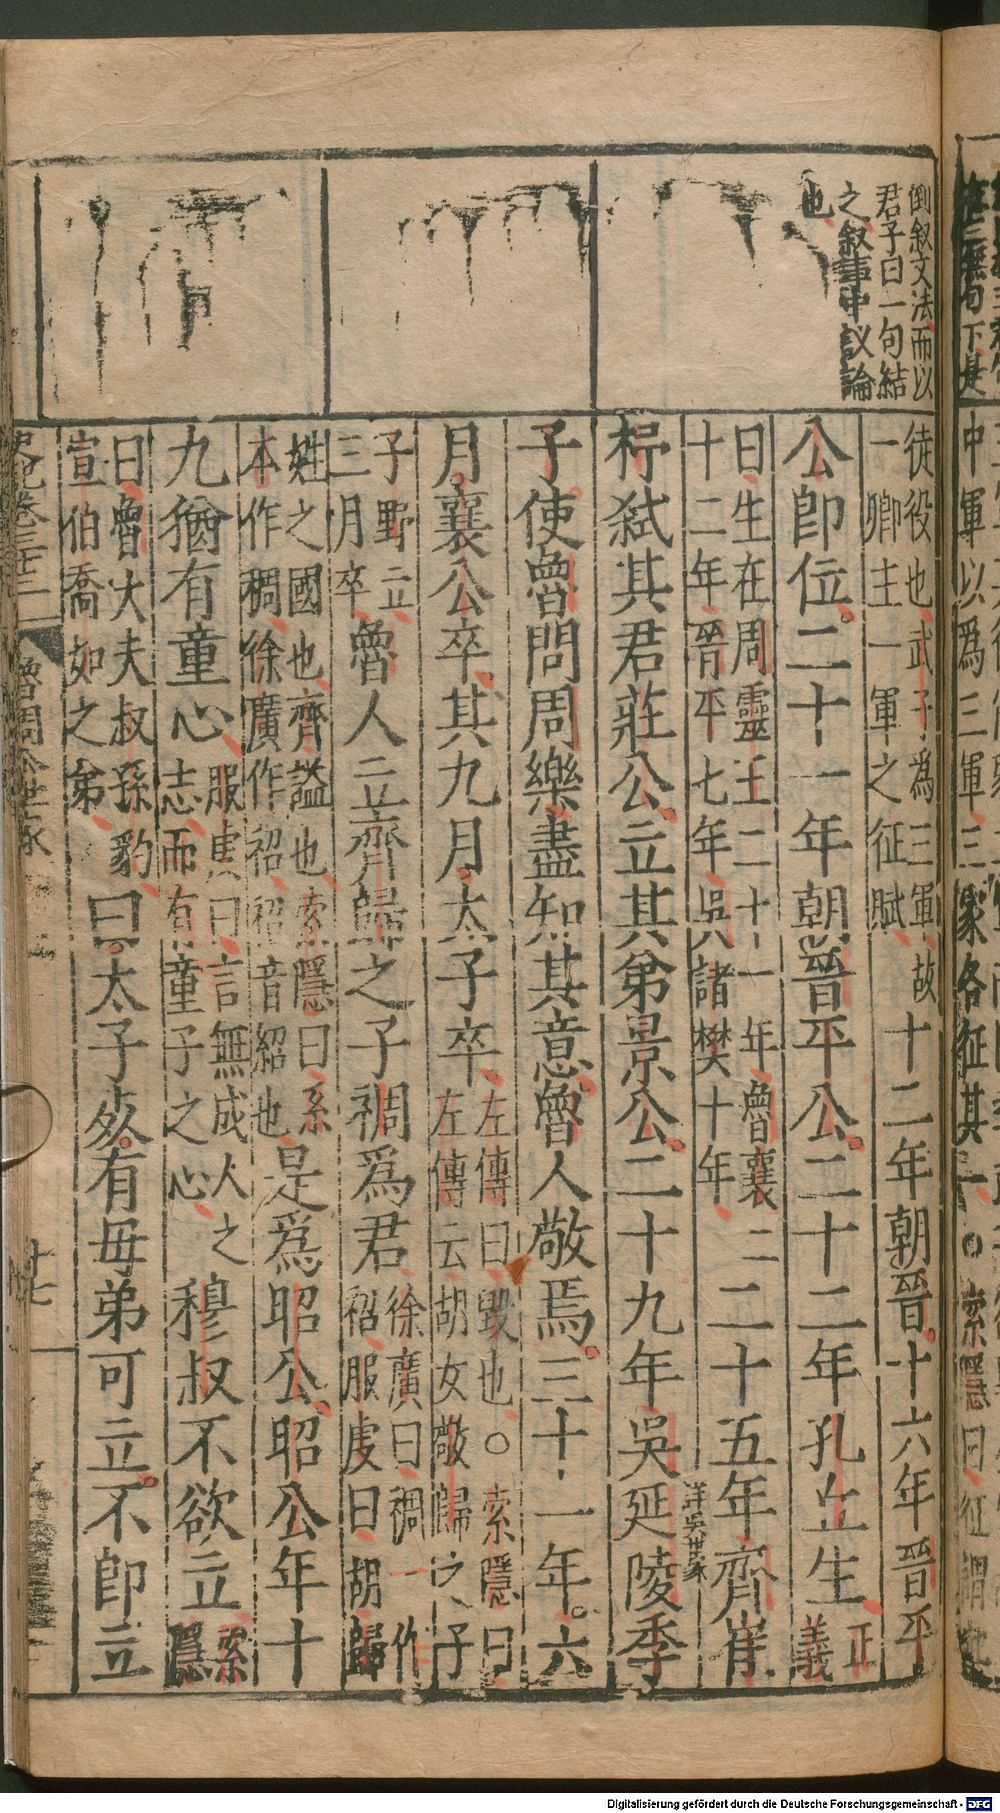 倒叙文法而以
君子曰一句結
之叙事中议論
也
徒役也武子為三軍故
一卿主一軍之征賦
十二年朝晉十六年晉平
公即位二十一年朝晉平公二十二年孔丘生
正
義
曰生在周靈王二十一年魯襄二
十二年晉平七年吳諸樊十年
二十五年齊崔
詳吳世家
杼弑其君莊公立其弟景公二十九年吳延陵季
子使魯問周樂盡知其意魯人敬焉三十一年六
月襄公卒其九月太子卒
左傳曰毀也○索隱曰
左傳云胡女敬歸之子
子野立
三月卒
魯人立齊歸之子裯爲君
徐廣曰裯一作
袑服虔曰胡歸
姓之國也齊謚也索隱曰系
本作稠徐廣作袑袑音紹也
是爲昭公昭公年十
九猶有童心
服虔曰言無成人之
志而有童子之心
穆叔不欲立
索
隱
曰魯大夫叔孫豹
宣伯喬如之弟
曰太子死有毋弟可立不即立
史記卷三十三
魯周公世家
廿七
Digitalisierung gefördert durch die Deutsche Forschungsgemeinschaft - DFG